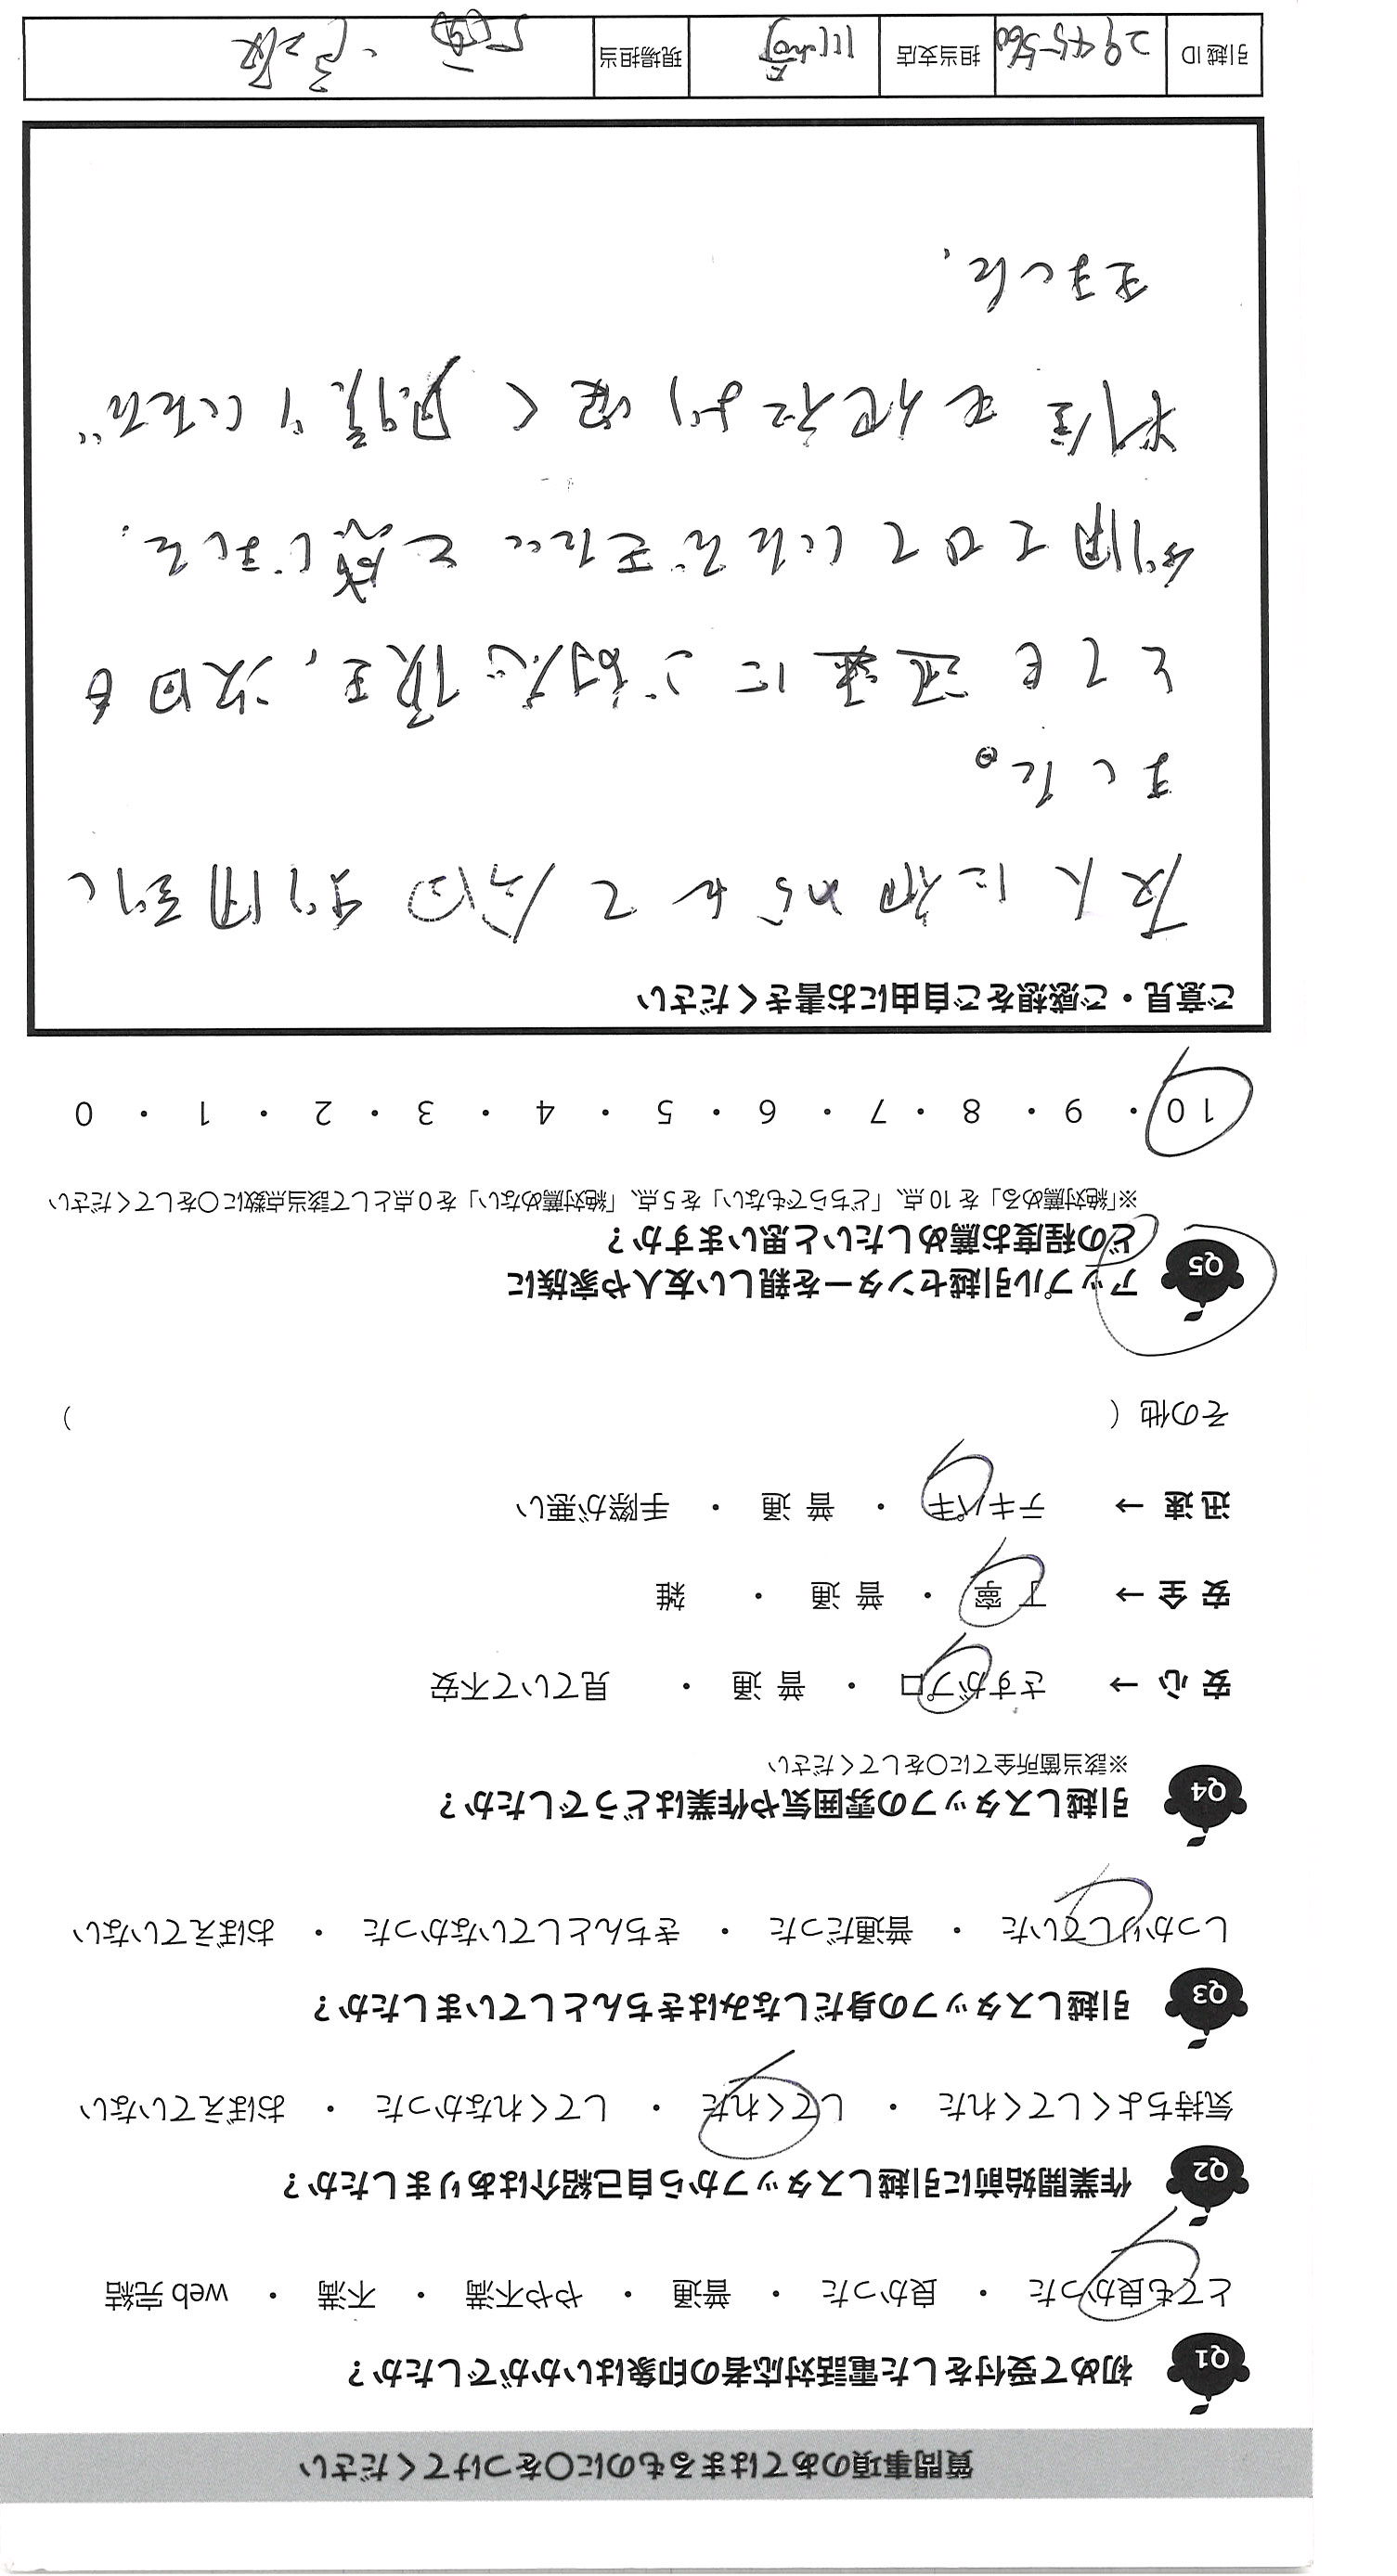 質問事項のあてはまるものに〇をつけてください
Q1 初めて受付をした電話対応者の印象はいかがでしたか？
とても良かった ・ 良かった ・ 普通 ・ やや不満 ・ 不満 ・ web 完結
Q2 作業開始前に引越しスタッフから自己紹介はありましたか？
気持ちよくしてくれた ・ してくれた ・ してくれなかった ・ おぼえていない
Q3 引越しスタッフの身だしなみはきちんとしていましたか？
しっかりしていた ・ 普通だった ・ きちんとしていなかった ・ おぼえていない
Q4 引越しスタッフの雰囲気や作業はどうでしたか？
※該当箇所全てに〇をしてください
安 心 → さすがプロ ・ 普 通 ・ 見ていて不安
安 全 → 丁 寧 ・ 普 通 ・ 雑
迅 速 → テキパキ ・ 普 通 ・ 手際が悪い
その他（ ）
Q5 アップル引越センターを親しい友人や家族に
どの程度お薦めしたいと思いますか？
※「絶対薦める」を 10 点、「どちらでもない」を 5 点、「絶対薦めない」を 0 点として該当点数に〇をしてください
10 ・ 9 ・ 8 ・ 7 ・ 6 ・ 5 ・ 4 ・ 3 ・ 2 ・ 1 ・ 0
ご意見・ご感想をご自由にお書きください
友人に紹介されて今回利用致し
ました。
とても迅速にご対応頂き、次回も
利用させていただきたいと感じました。
料金も他社より安く見積りいただ
きました。
引越 ID 2945560 担当支店 川崎 現場担当